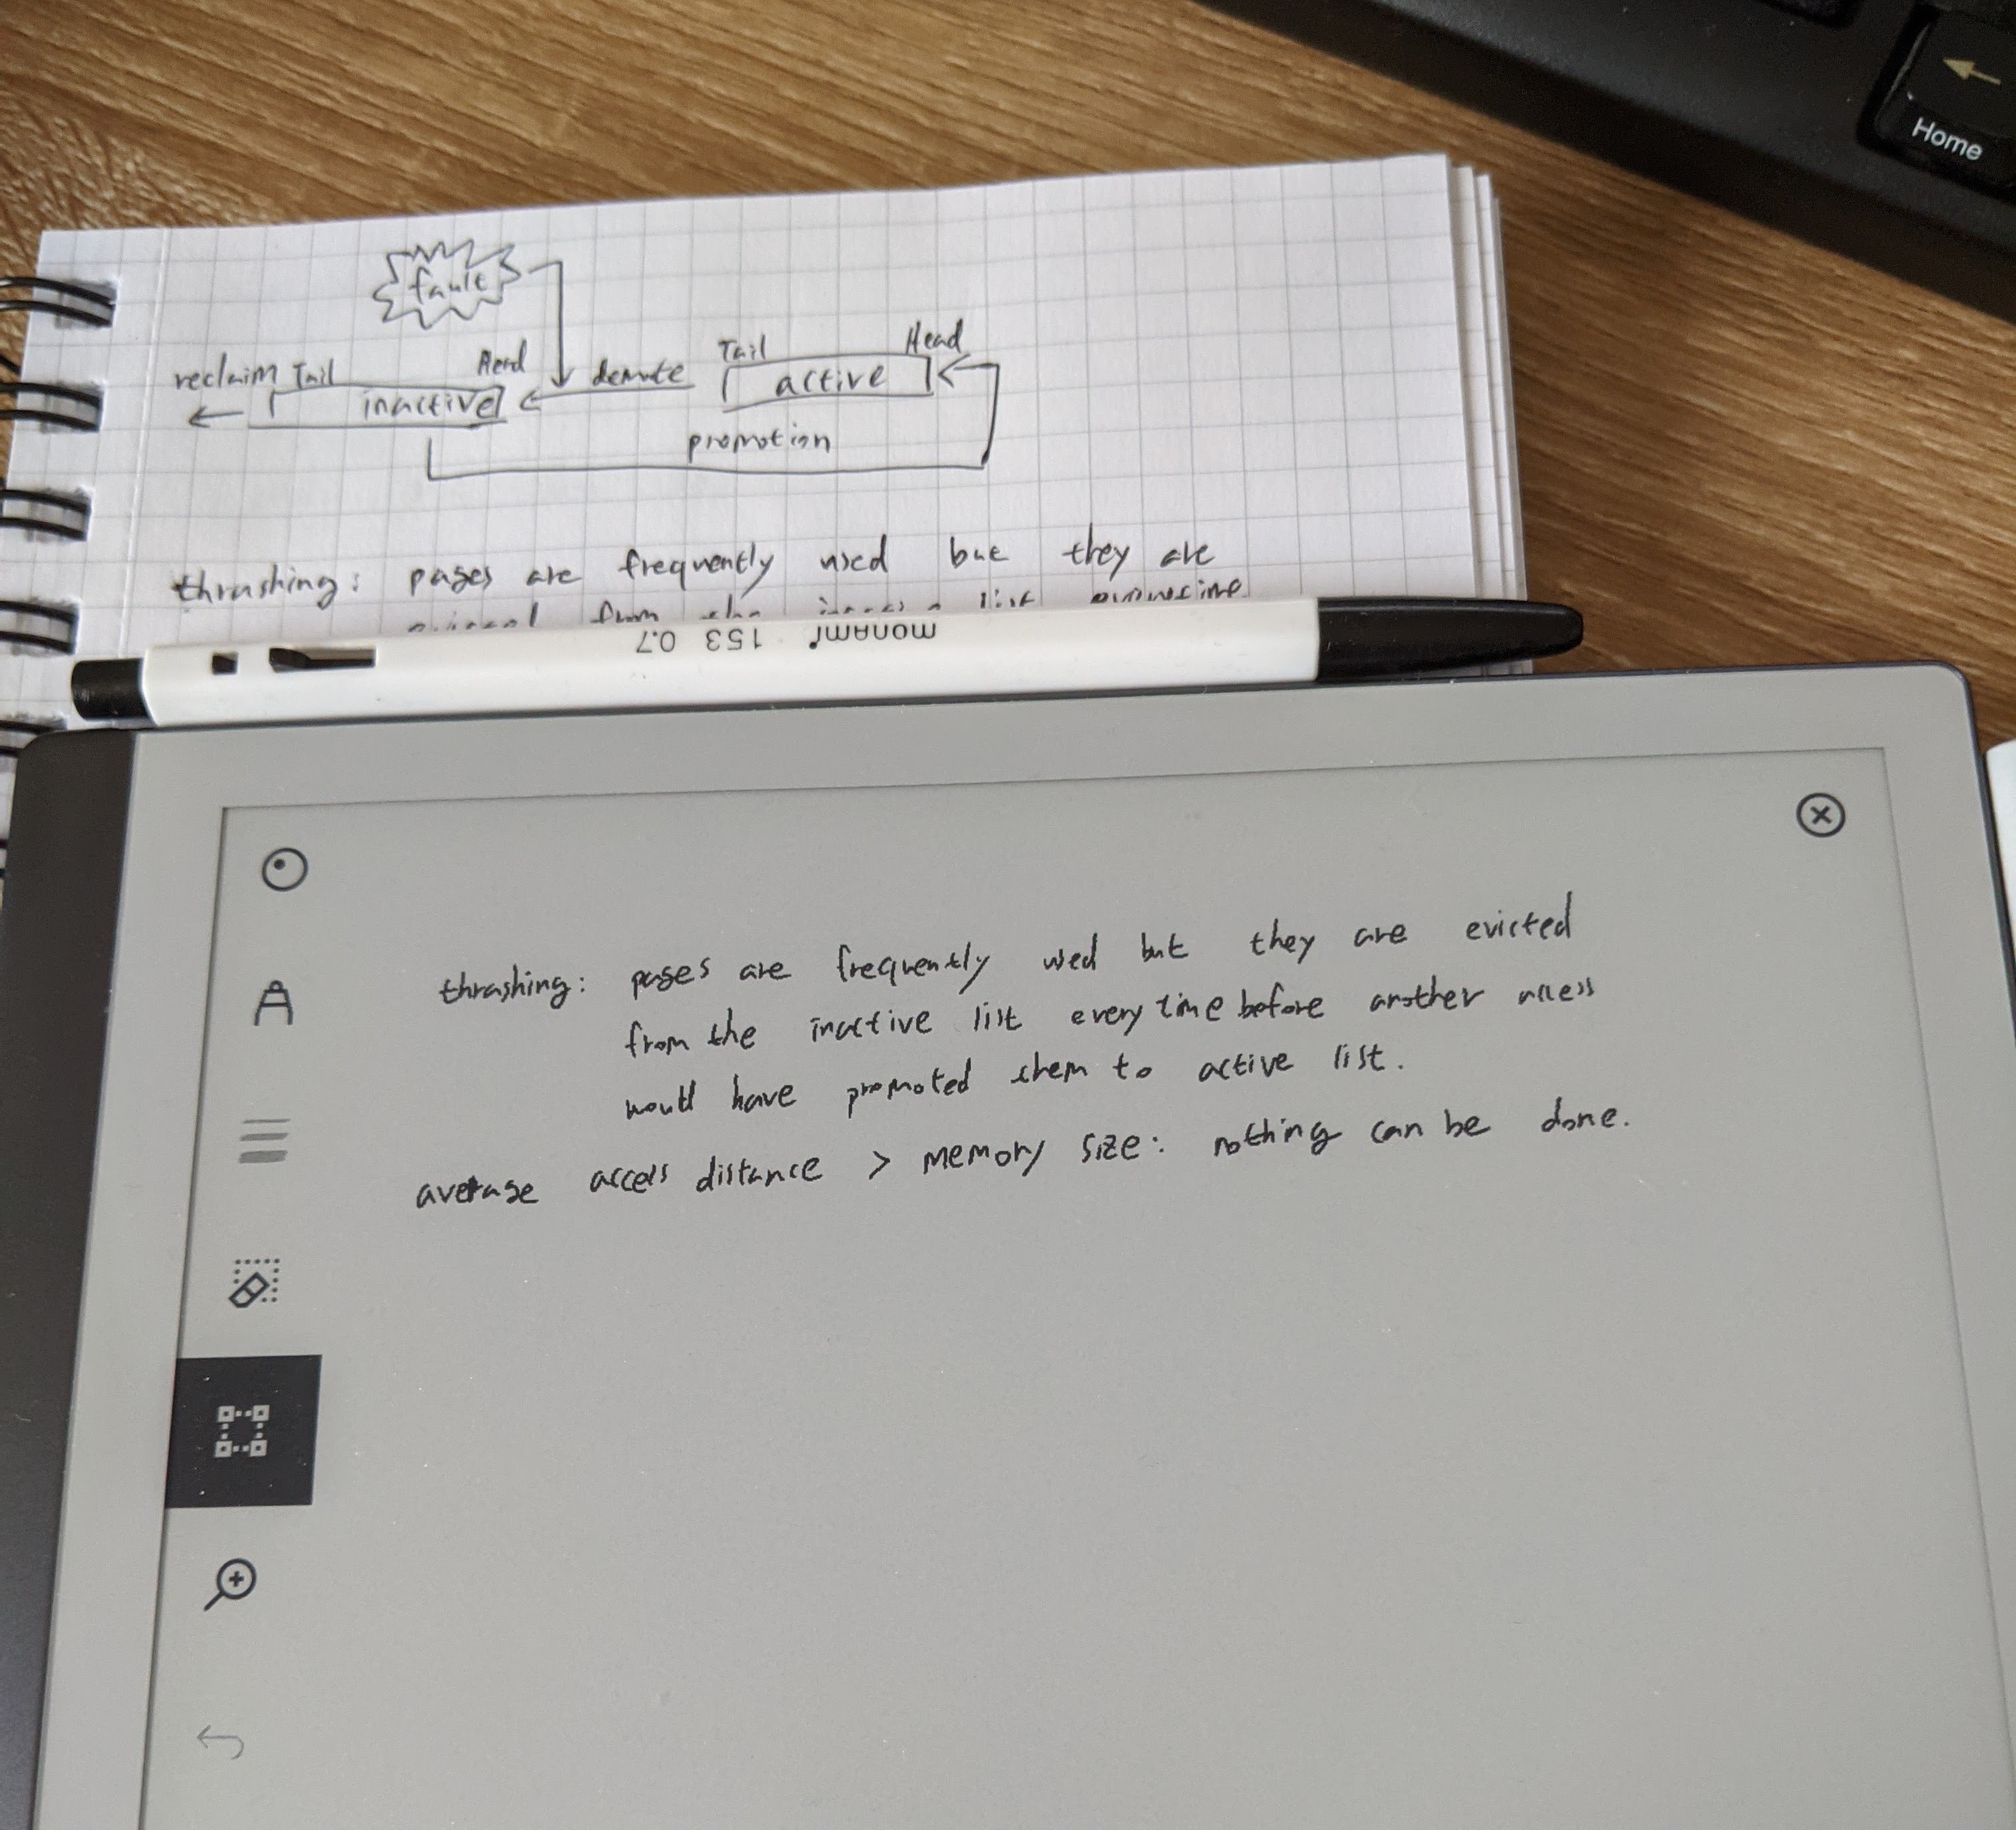 Home
fault
reclaim Tail Head demote Tail Head
inactive active
promotion
thrashing: pages are frequently used but they are
from the list
monami 153 0.7
thrashing: pages are frequently used but they are evicted
from the inactive list every time before another access
would have promoted them to active list.
average access distance > memory size: nothing can be done.